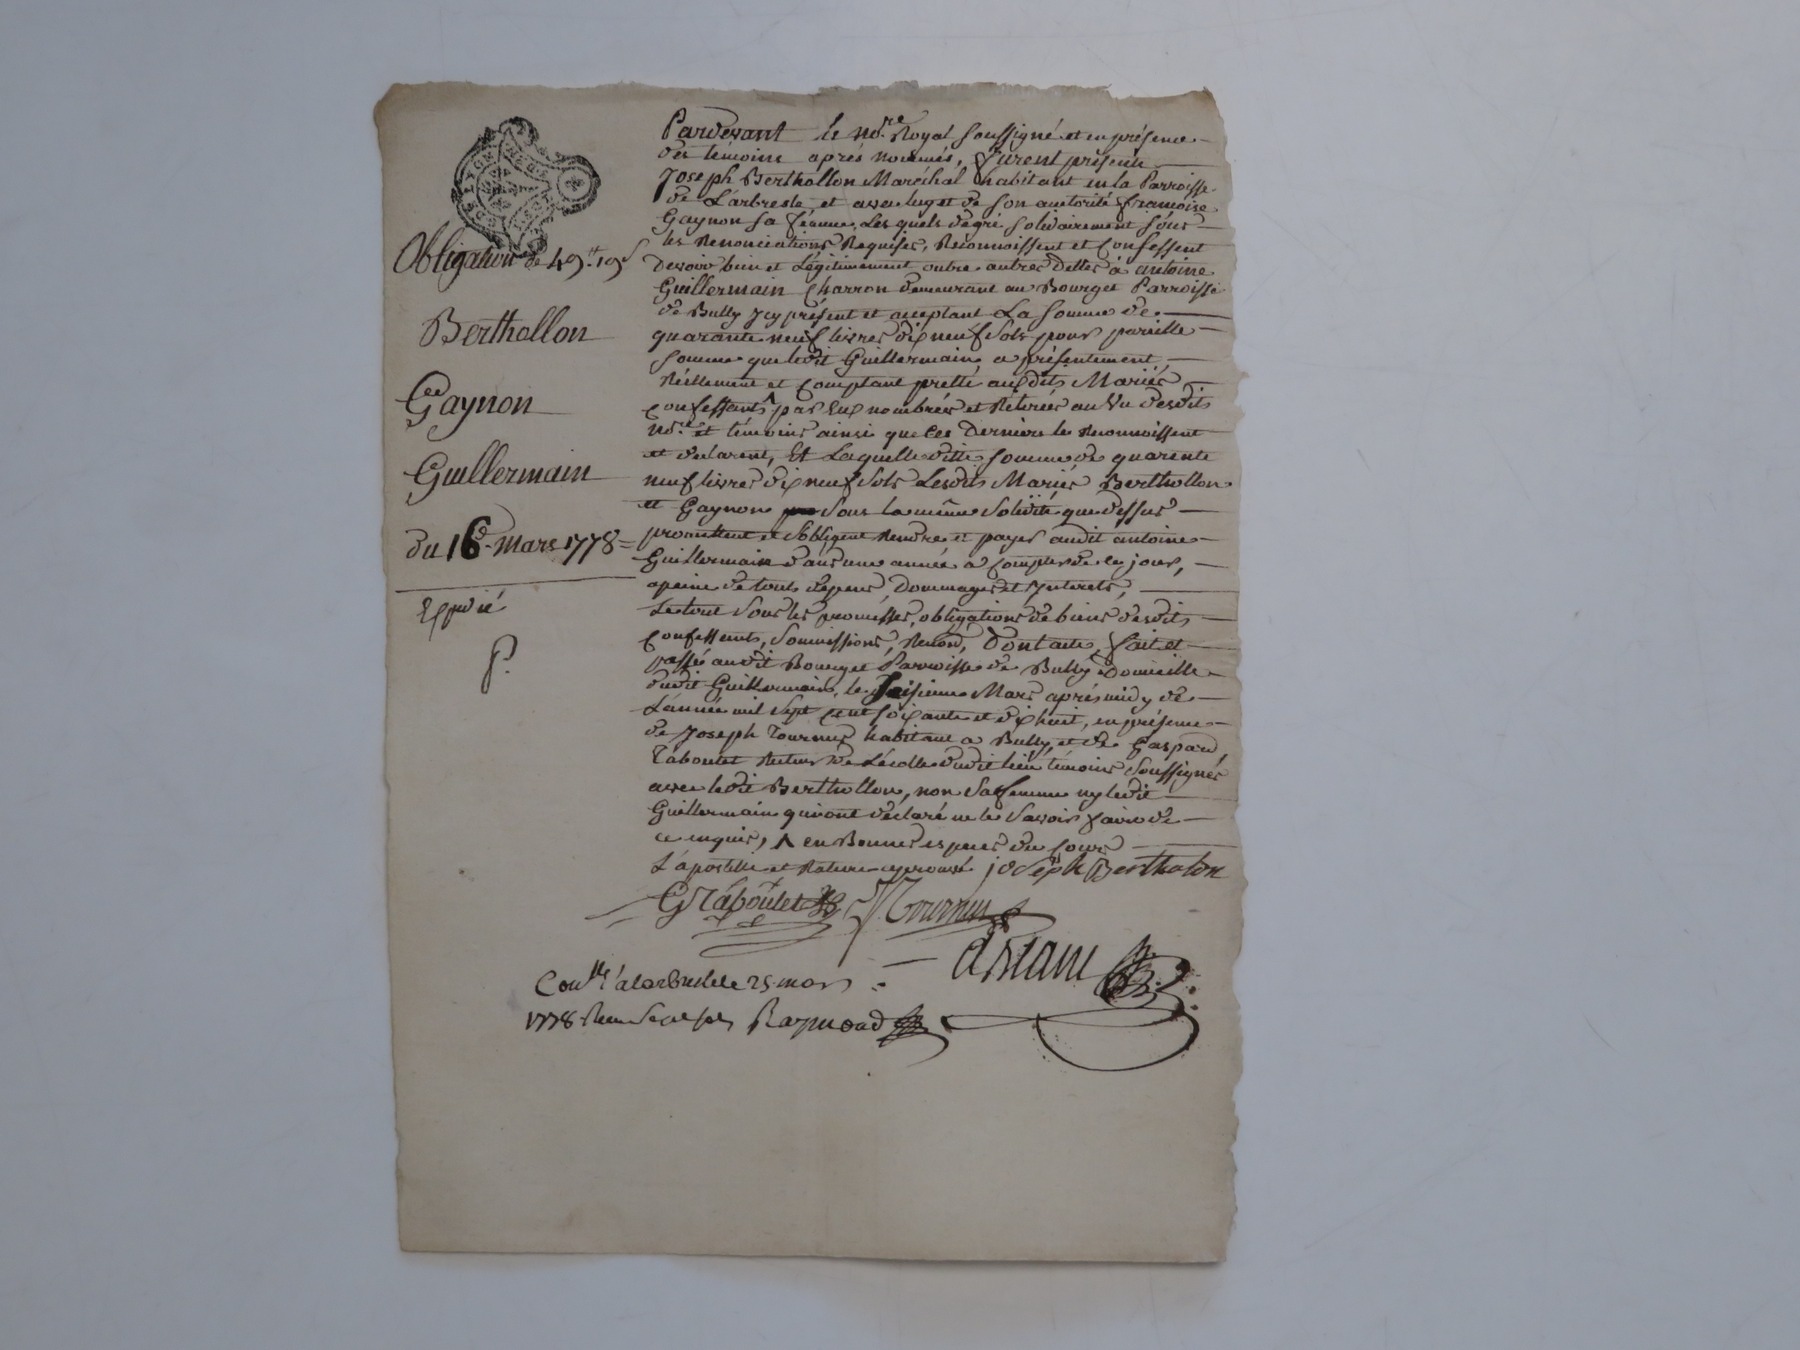 Obligation de 49tt 19s
Berthollon
Gaynon
Guillermain
du 16e Mars 1778 =
Expedié
P.
Pardevant le nore Royal soussigné et en présence
des témoins aprés nommés, furent présents
Joseph Berthollon Maréchal habitant en la Parroisse
de L'arbresle et avec luy et de son autorité françoise
Gaynon sa fémme, Les quels de gré solidairement sous
les Renonciations Requises, Reconnoissent et Confessent
devoir bien et Légitimement outre autres dettes à antoine
Guillermain Charron demeurant au Bourg et Parroisse
de Bully Icy présent et acceptant La somme de
quarante neuf livres dix neuf sols pour pareille
somme que ledit Guillermain a présentement,
Réellement et Comptant pretté auxdits Mariés
Confessants ^ par Eux nombrées et Retirées au Vu desdits
nore et témoins ainsi que Ces derniers le Reconnoissent
et declarent, Et Laquelle ditte somme de quarente
neuf livres dix neuf sols Lesdits Mariés Berthollon
et Gaynon sous la même solidité que dessus
promettent et s'obligent Rendre et payer audit antoine
Guillermain dans une année a Compter de Ce jour,
apeine de touts depens, dommages et Interets,
Le tout sous les promesses, obligations de biens desdits
Confessants, soumissions, Renon, Dont acte, fait et
passé audit Bourg et Parroisse de Bully Domicille
dudit Guillermain, le seisieme Mars aprés midy de
L'année mil sept cent soixante et dix huit, en présence
de Joseph Tournus habitant a Bully, et de Gaspard
Taboulet Recteur de L'école dudit lieu témoins soussignés
avec ledit Berthollon, non sa femme ny ledit
Guillermain qui ont déclaré ne le savoir faire de
ce enquis, ^ en Bonnes especes de cours
L'apostille et Rature approuvé joseph Bertholon
G Taboulet J Tournus
Conlle a Larbresle le 25 mars
1778 Reçu Raymond